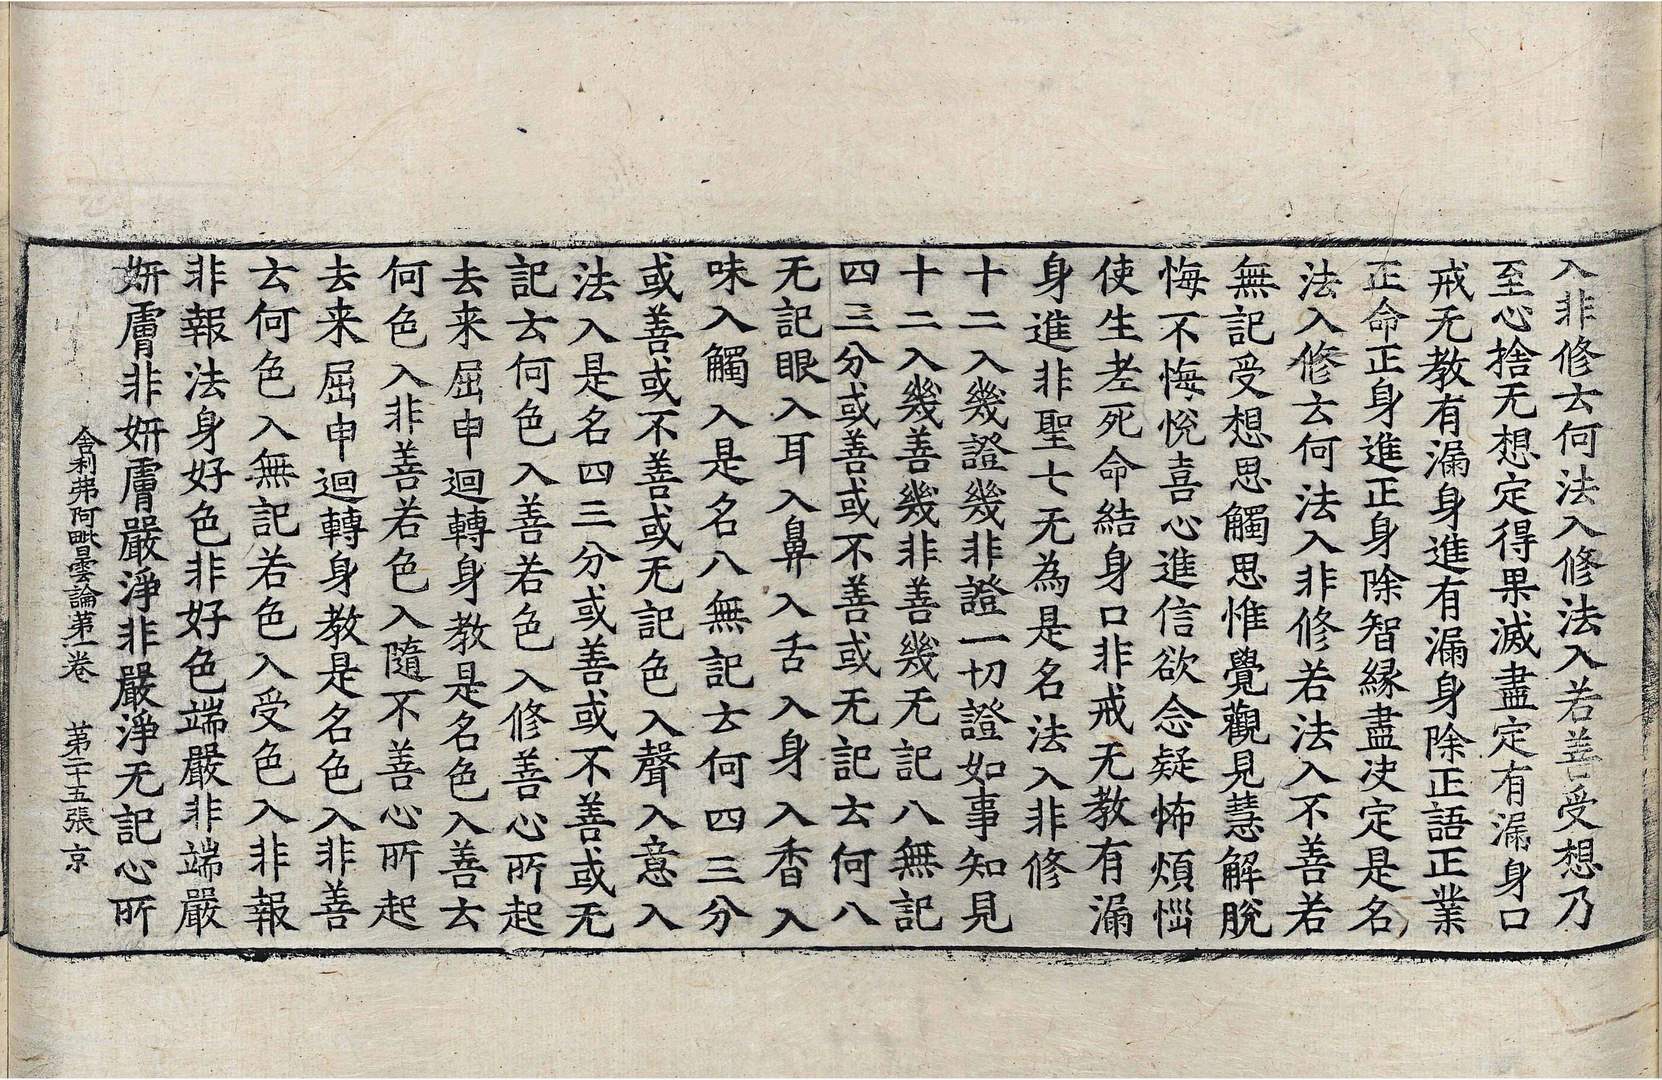 入非修云何法入修法入若善受想乃
至心捨无想定得果滅盡定有漏身口
戒无教有漏身進有漏身除正語正業
正命正身進正身除智緣盡决定是名
法入修云何法入非修若法入不善若
無記受想思觸思惟覺觀見慧解脫
悔不悔悅喜心進信欲念疑怖煩惱
使生老死命結身口非戒无教有漏
身進非聖七无為是名法入非修
十二入幾證幾非證一切證如事知見
十二入幾善幾非善幾无記八無記
四三分或善或不善或无記云何八
无記眼入耳入鼻入舌入身入香入
味入觸入是名八無記云何四三分
或善或不善或无記色入聲入意入
法入是名四三分或善或不善或无
記云何色入善若色入修善心所起
去来屈申迴轉身教是名色入善云
何色入非善若色入隨不善心所起
去来屈申迴轉身教是名色入非善
云何色入無記若色入受色入非報
非報法身好色非好色端嚴非端嚴
妍膚非妍膚嚴淨非嚴淨无記心所
舍利弗阿毗曇論第一卷 第二十五張 京